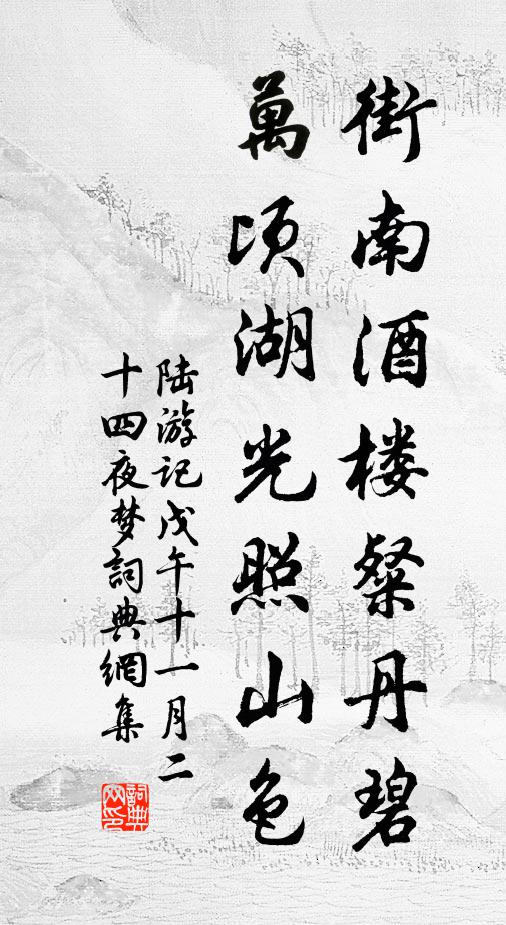 街南酒楼粲丹碧
萬顷湖光照山色
陆游记戊午十一月二
十四夜梦詞典網集
詞典网印